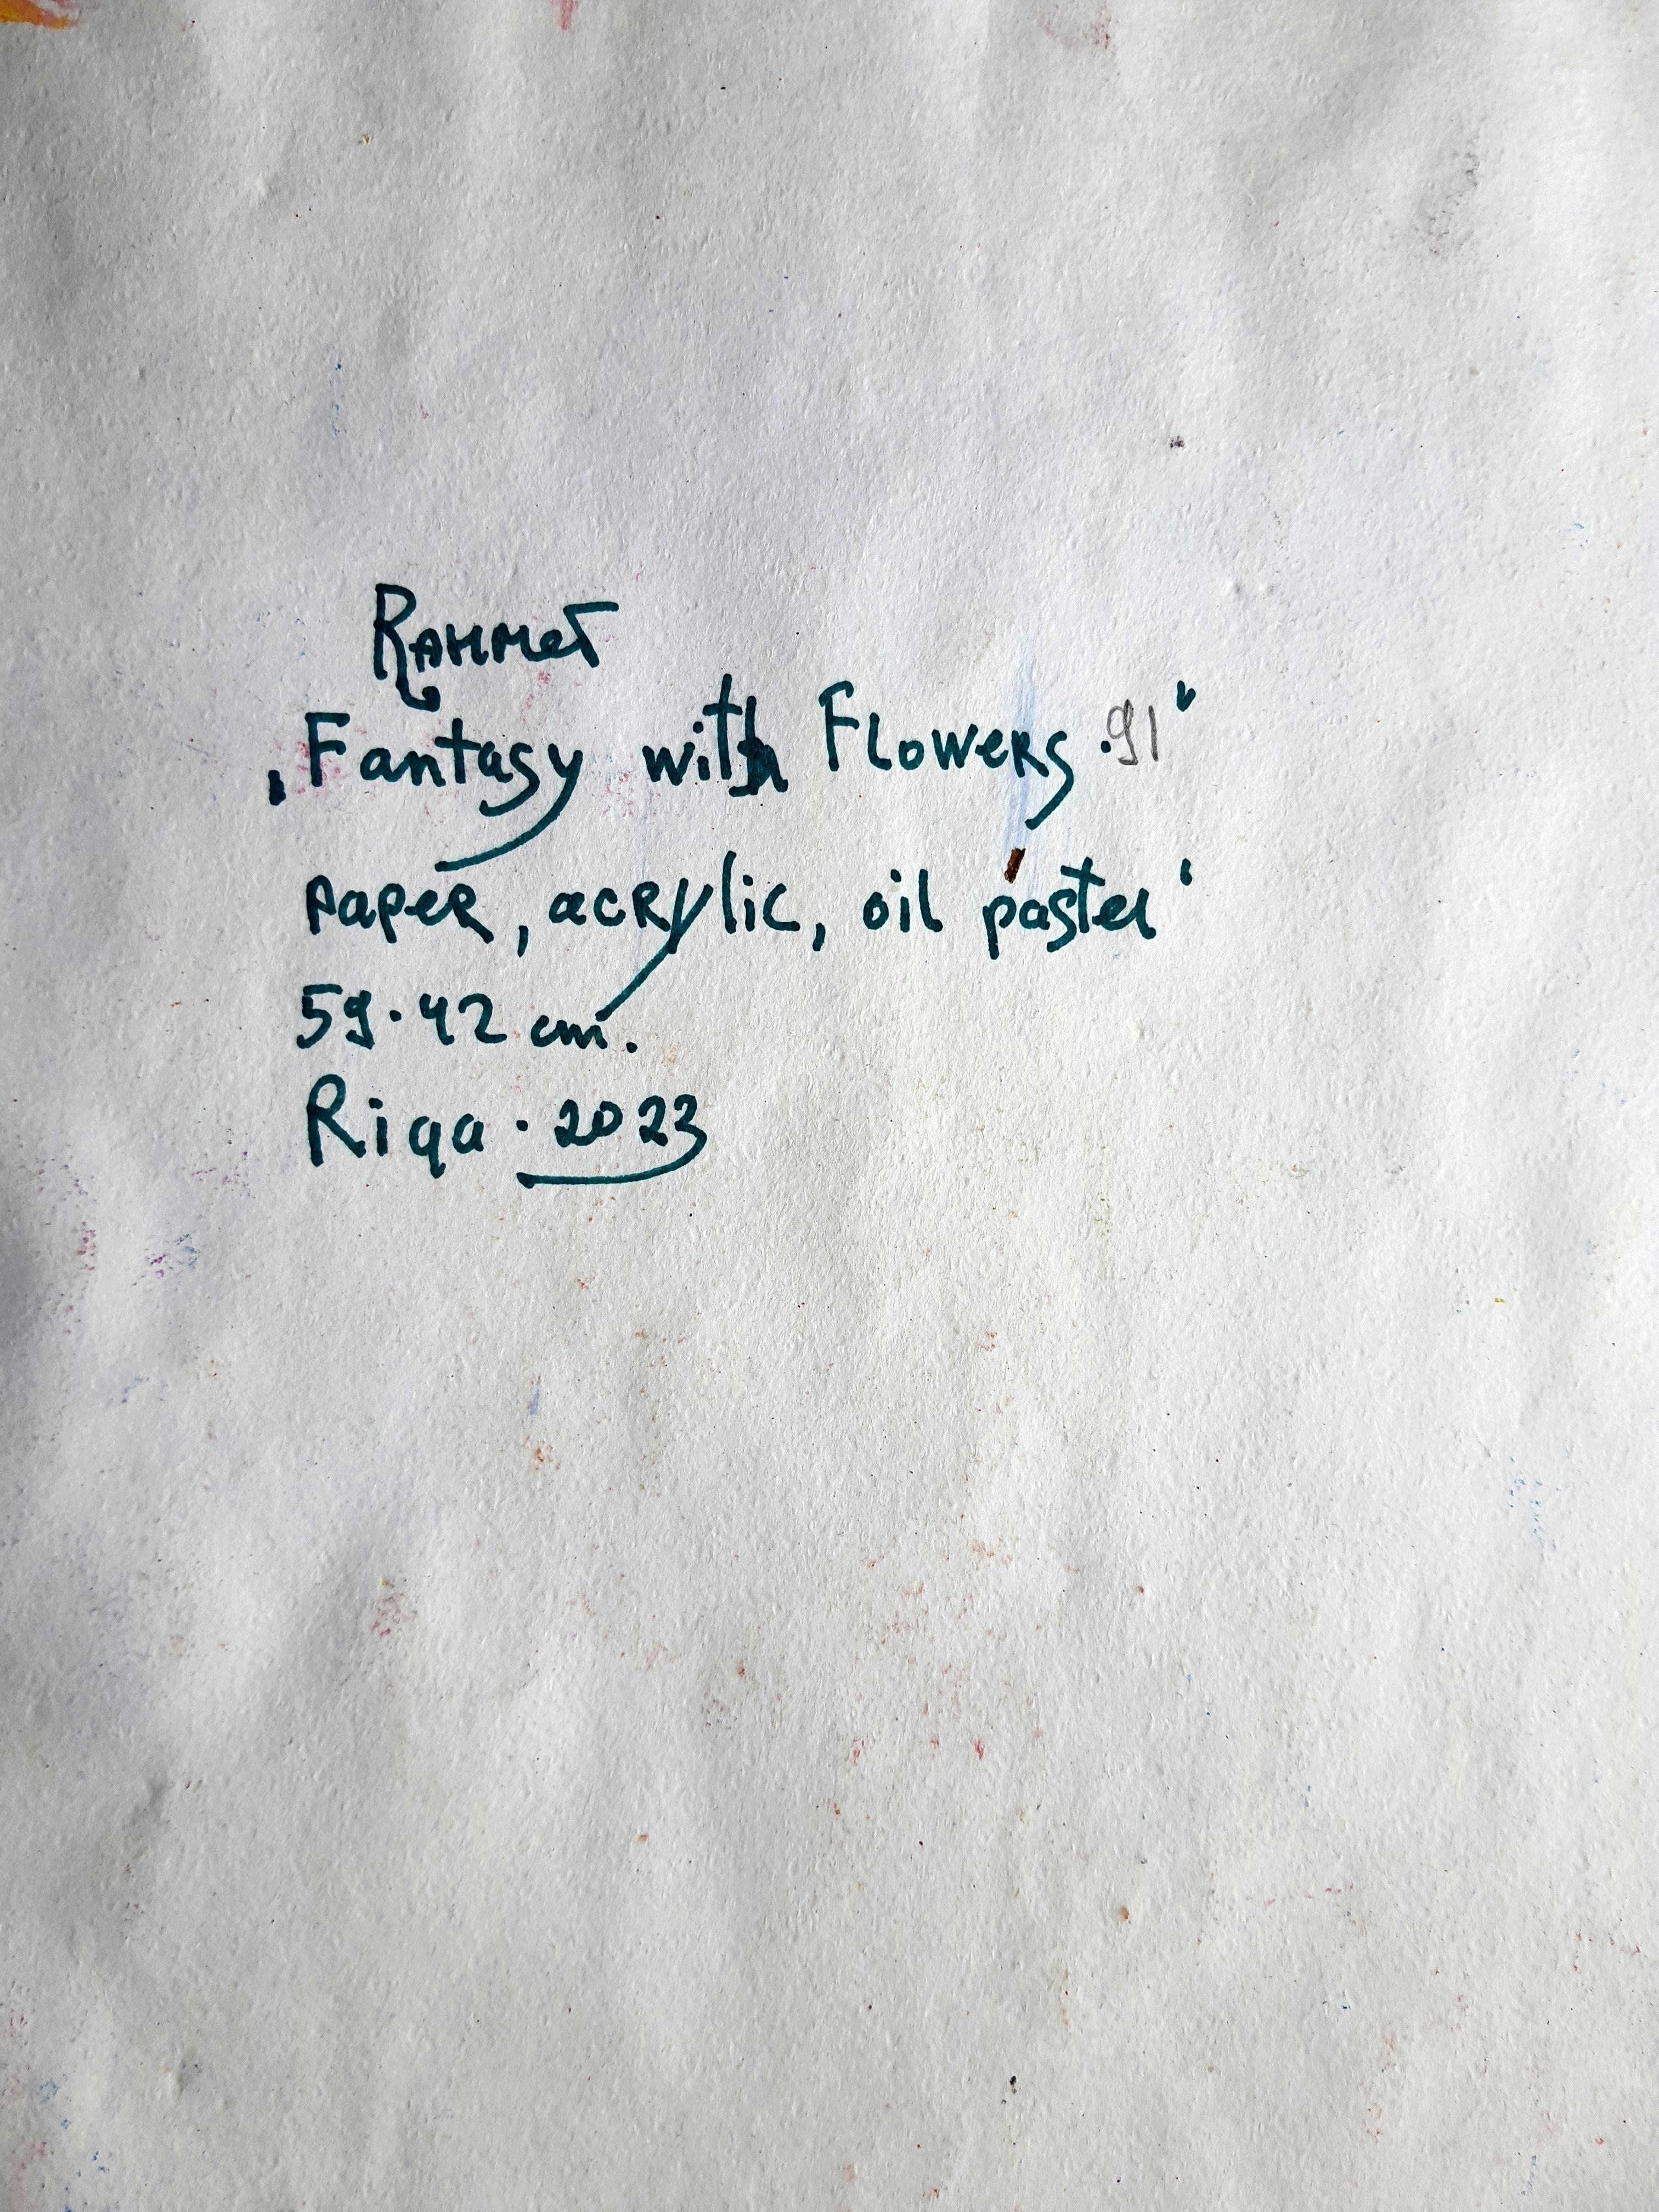 Rahmet
„Fantasy with Flowers .91"
paper, acrylic, oil pastel'
59·42 cm.
Riga · 2023